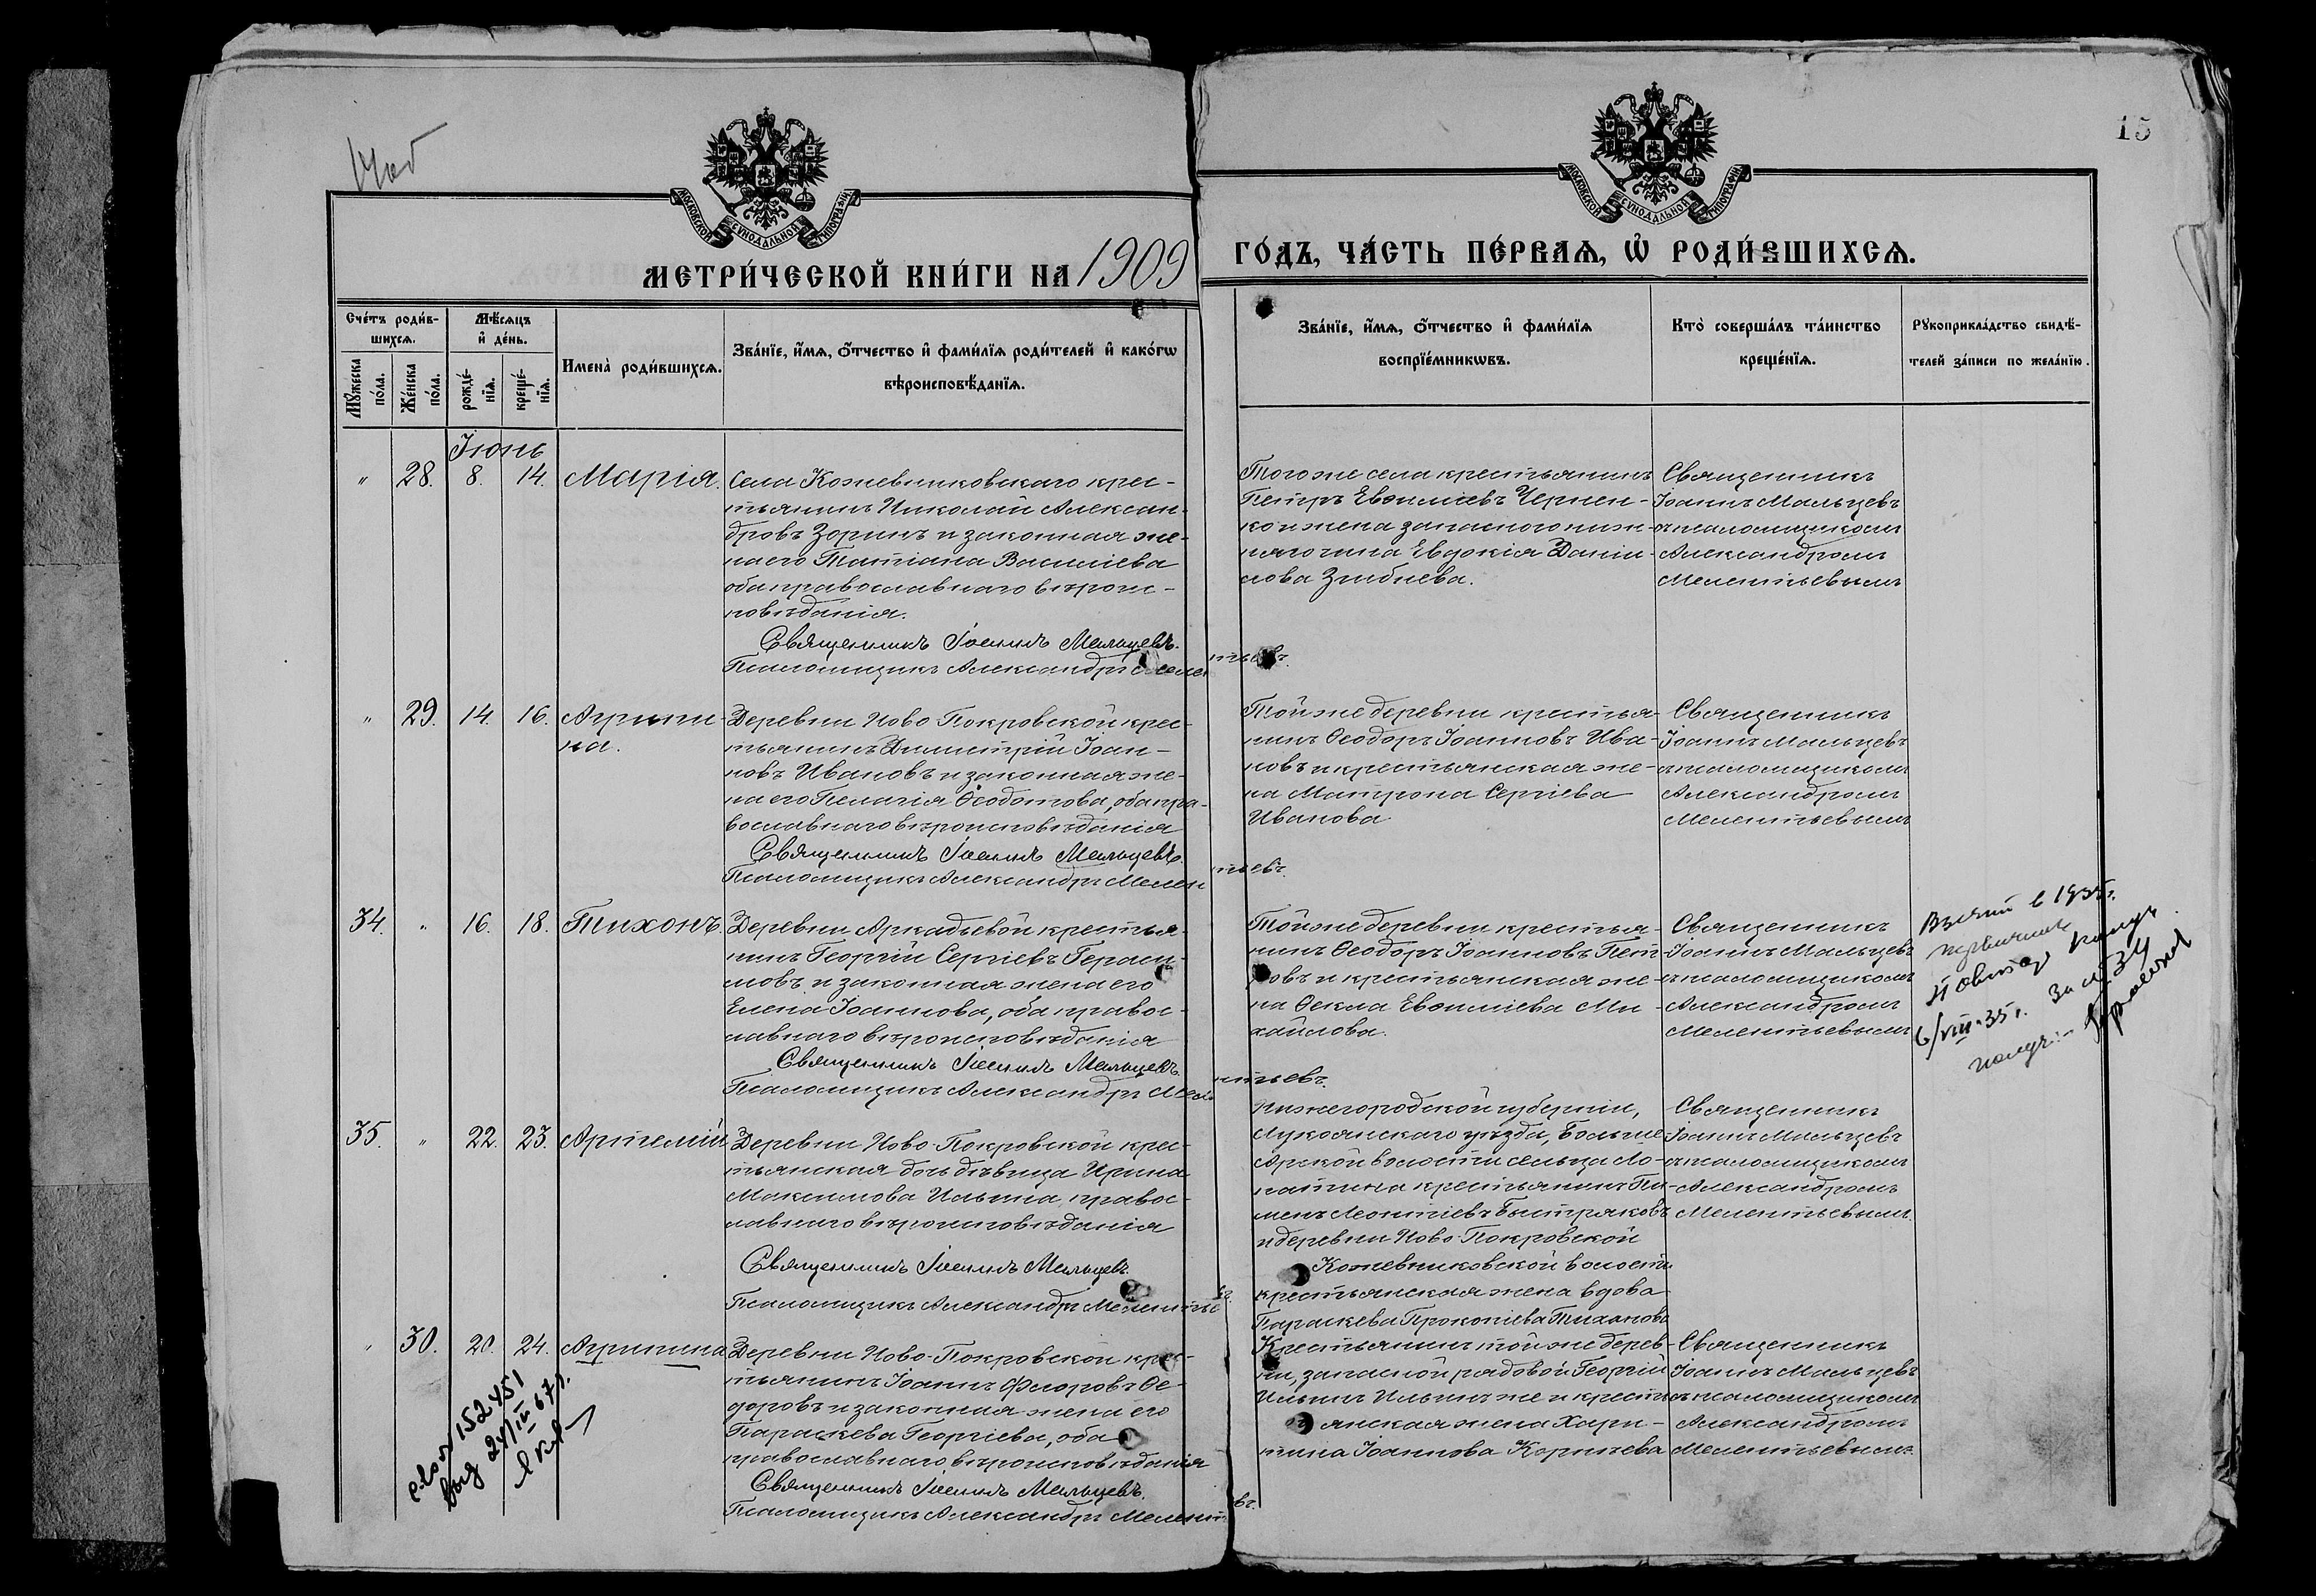 15
МОСКОВСКОЙ СУНОДАЛЬНОЙ ТИПОГРАФІИ
МОСКОВСКОЙ СУНОДАЛЬНОЙ ТИПОГРАФІИ
МЕТРИ́ЧЕСКОЙ КНИ́ГИ НА 1909
ГО́ДЪ, ЧА́СТЬ ПЕ́РВАѦ, Ѡ҆ РОДИ́ВШИХСѦ.
Сче́тъ роди́в-
шихсѧ.
Мѣ́сѧцъ
и҆ де́нь.
Мꙋ́жеска
по́ла.
Же́нска
по́ла.
рожде́-
нїѧ.
креще́-
нїѧ.
Имена̀ роди́вшихсѧ.
Зва́нїе, и҆́мѧ, о҆́тчество и҆ фами́лїѧ роди́телей и҆ како́гѡ
вѣроисповѣ́данїѧ.
Зва́нїе, и҆́мѧ, о҆́тчество и҆ фами́лїѧ
воспрїе́мникѡвъ.
Кто̀ соверша́лъ та́инство
креще́нїѧ.
Рꙋкоприкла́дство свидѣ́-
телей за́писи по жела́нїю.
Іюнь
" 28. 8. 14. Марія.
Села Кожевниковскаго крес-
тьянинъ Николай Алексан-
дровъ Зоринъ и законная же-
на его Татіана Василіева
оба православнаго вѣроис-
повѣданія.
Священникъ Іоаннъ Мальцевъ.
Псаломщикъ Александръ Мелентьевъ.
Того же села крестьянинъ
Петръ Евѳиміевъ Чернен-
ко и жена запасного ниж-
няго чина Евдокія Даніи-
лова Зиибнева.
Священникъ
Іоаннъ Мальцевъ
съ псаломщикомъ
Александромъ
Мелентьевымъ
" 29. 14. 16. Агриппи-
на.
Деревни Ново-Покровской крес-
тьянинъ Димитрій Іоан-
новъ Ивановъ и законная же-
на его Пелагія Ѳеодотова, оба пра-
вославнаго вѣроисповѣданія
Священникъ Іоаннъ Мальцевъ.
Псаломщикъ Александръ Мелентьевъ.
Той же деревни крестья-
нинъ Ѳеодоръ Іоанновъ Ива-
новъ и крестьянская же-
на Матрона Сергіева
Иванова
Священникъ
Іоаннъ Мальцевъ
съ псаломщикомъ
Александромъ
Мелентьевымъ
34. " 16. 18. Тихонъ
Деревни Аркадьевой крестья-
нинъ Георгій Сергіевъ Гераси-
мовъ и законная жена его
Елена Іоаннова, оба правос-
лавнаго вѣроисповѣданія
Священникъ Іоаннъ Мальцевъ.
Псаломщикъ Александръ Мелентьевъ.
Той же деревни крестья-
нинъ Ѳеодоръ Іоанновъ Пет-
ровъ и крестьянская же-
на Ѳекла Евѳиміева Ми-
хайлова.
Священникъ
Іоаннъ Мальцевъ
съ псаломщикомъ
Александромъ
Мелентьевымъ
в 1935 г.
6/VIII-35 г. За № 34
35. " 22. 23. Артемій
Деревни Ново-Покровской крес-
тьянская дочь дѣвица Ирина
Максимова Ильина правос-
лавнаго вѣроисповѣданія
Священникъ Іоаннъ Мальцевъ.
Псаломщикъ Александръ Мелентьевъ.
Нижегородской губерніи,
Лукоянскаго уѣзда, Больше-
Арской волости сельца Ло-
патина крестьянинъ Пи-
менъ Леонтіевъ Быстряковъ
и деревни Ново-Покровской
Кожевниковской волости
крестьянская жена вдова
Параскева Прокопіева Тиханова
Священникъ
Іоаннъ Мальцевъ
съ псаломщикомъ
Александромъ
Мелентьевымъ.
" 30. 20. 24. Агриппина
Деревни Ново-Покровской крес-
тьянинъ Іоаннъ Флоровъ Ѳе-
доровъ и законная жена его
Параскева Георгіева, оба
православнаго вѣроисповѣданія
Священникъ Іоаннъ Мальцевъ.
Псаломщикъ Александръ Мелентьевъ.
Крестьянинъ той же дерев-
ни, запасной рядовой Георгій
Ильинъ Ильинъ же и кресть-
янская жена Хари-
тина Іоаннова Корнчева
Священникъ
Іоаннъ Мальцевъ
съ псаломщикомъ
Александромъ
Мелентьевымъ.
152451
выд 24/III 67 г.